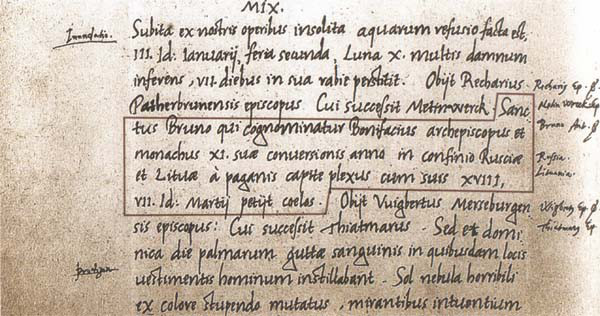 MIX.
Inundatio.
Subita ex nostris operibus insolita aquarum refusio facta est,
III. Id: Ianuarij, feria secunda, Luna X. multis damnum
inferens, VII. diebus in sua rabie perstitit. Obijt Recharius
Patherbrunensis episcopus Cui successit Sanc
tus Bruno qui cognominatur Bonifacius archepiscopus et
Bruno
monachus XI. suæ conversionis anno in confinio Rusciæ
Russia.
et Lituæ à paganis capite plexus cum suis XVIII,
Lituania.
VII. Id: Martij petijt coelos. Obijt Vuigbertus Merseburgen
sis episcopus: Cui successit Thiatmarus. Sed et domi
nica die palmarum guttæ sanguinis in quibusdam locis
vestimentis hominum instillabant. Sol nebula horribili
ex colore stupendo mutatus, mirantibus intuentium